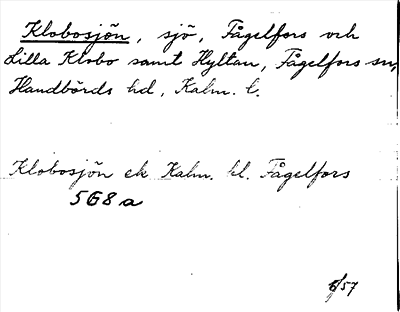 Klobosjön, sjö, Fågelfors och
Lilla Klobo samt Hyltan, Fågelfors sn,
Handbörds hd, Kalm. l.
Klobosjön ek Kalm. kl. Fågelfors
568a
/57